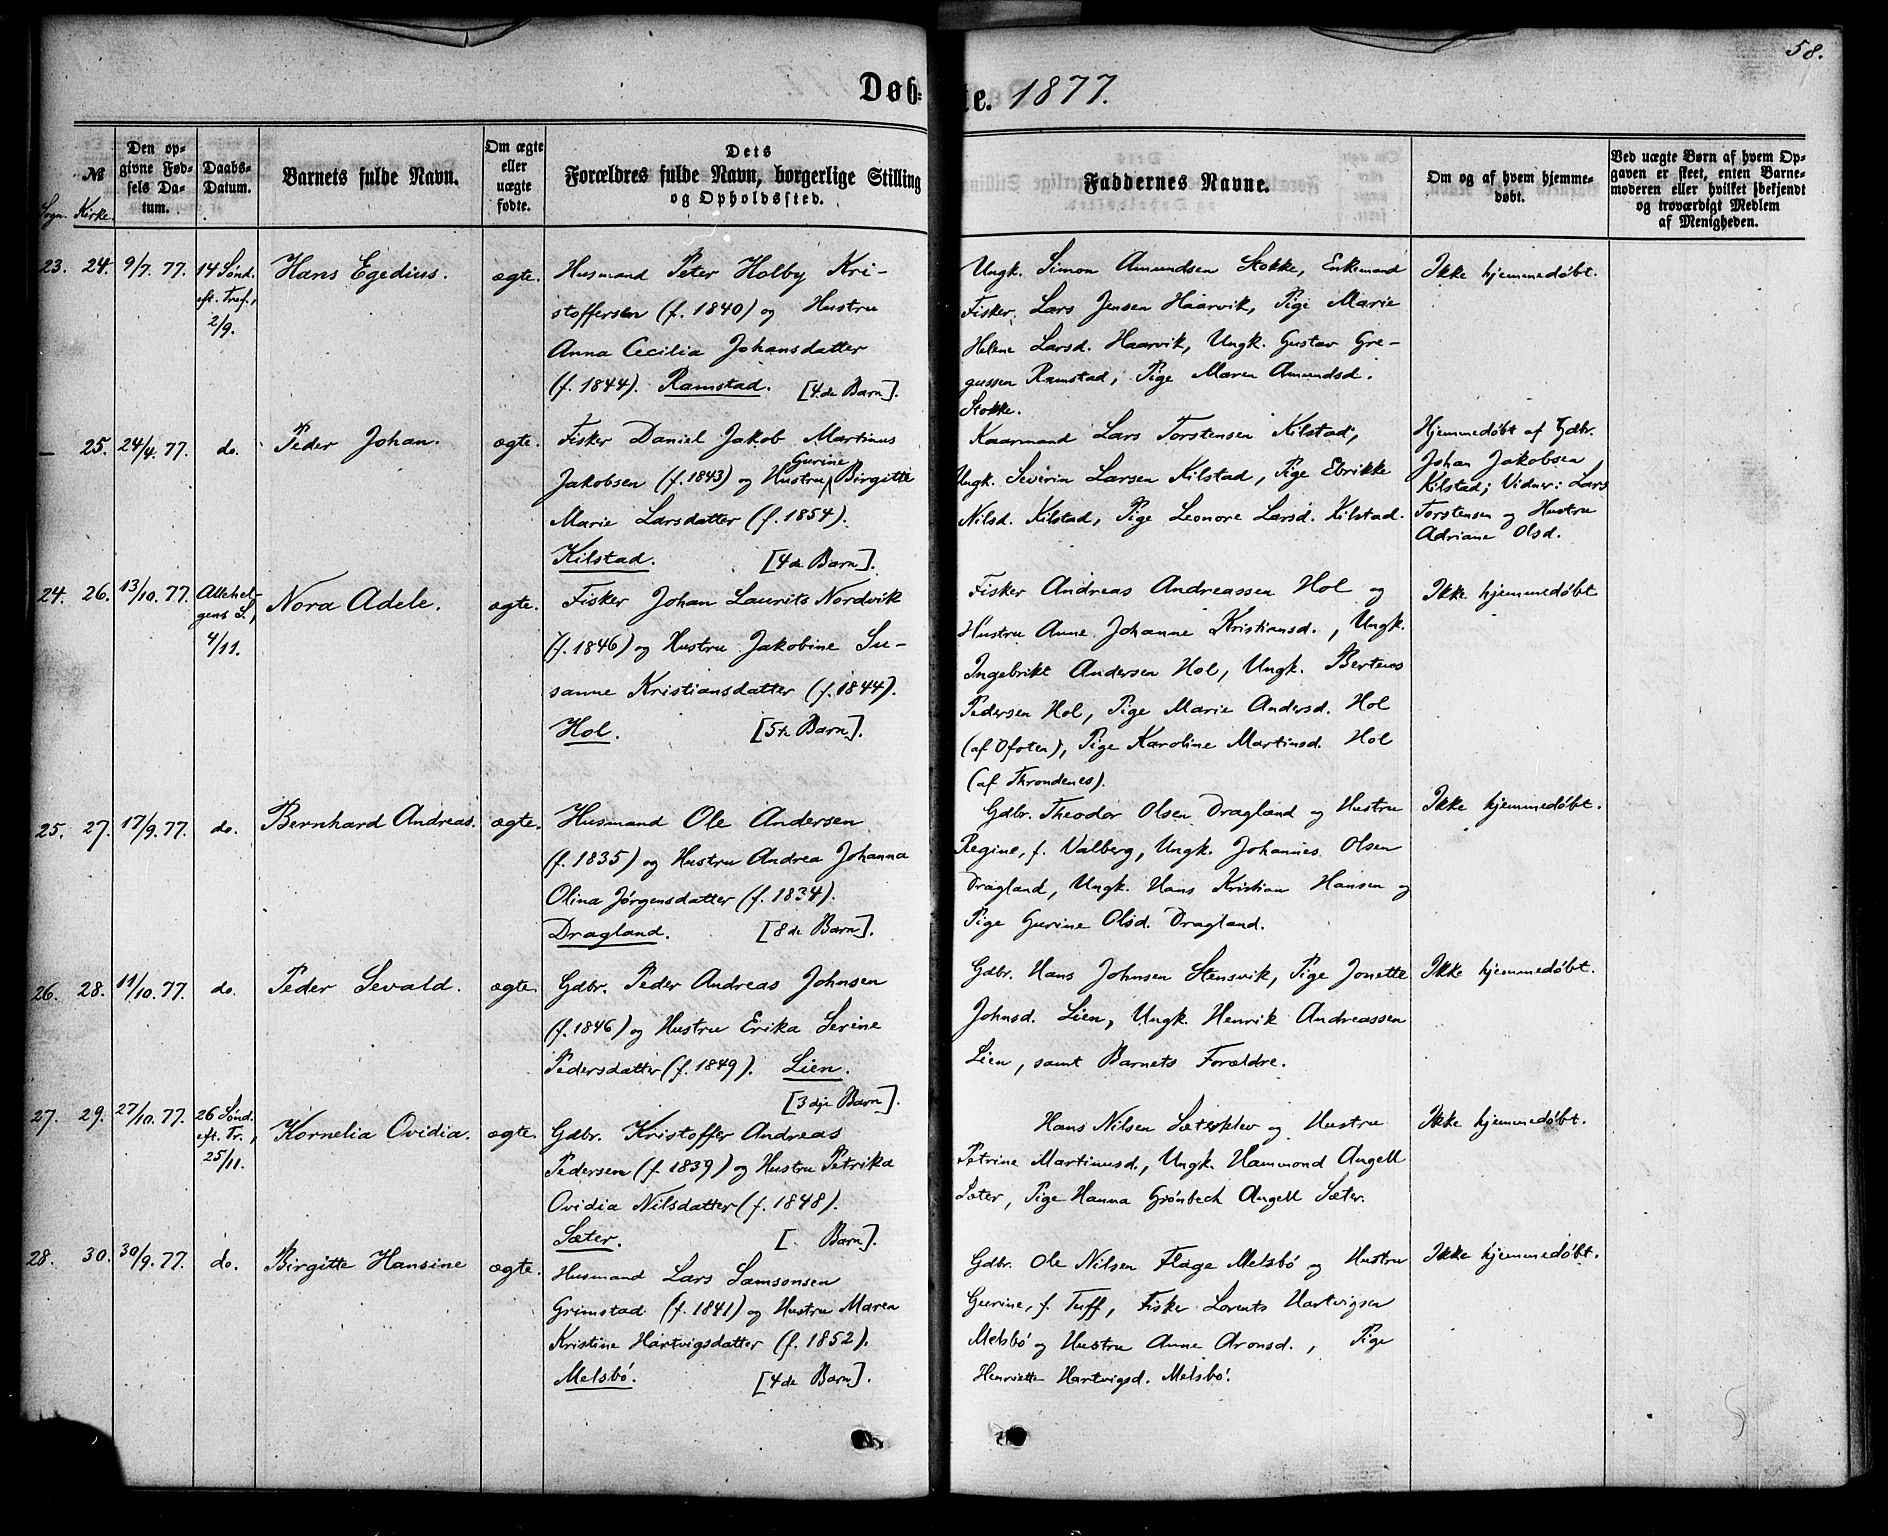 58.
Døbte. 1877.
№
Sogn. Kirke.
Den op-
givne Fød-
sels Da-
tum.
Daabs-
Datum.
Barnets fulde Navn.
Om ægte
eller
uægte
fødte.
Dets
Forældres fulde Navn, borgerlige Stilling
og Opholdssted.
Faddernes Navne.
Om og af hvem hjemme-
døbt.
Ved uægte Børn af hvem Op-
gaven er skeet, enten Barne-
moderen eller hvilket bekjendt
og troværdigt Medlem
af Menigheden.
23. 24. 9/7. 77.
14 Sønd.
eft. Tref.,
2/9.
Hans Egedius.
ægte.
Husmand Peter Holby Kri-
stoffersen (f. 1840) og Hustru
Anna Cecilia Johansdatter
(f. 1844). Ramstad. [4de Barn].
Ungk. Simon Amundsen Stokke, Enkemand
Fisker Lars Jensen Haarvik, Pige Marie
Helene Larsd. Haarvik, Ungk. Gustav Gre-
gussen Ramstad, Pige Maren Amundsd.
Stokke.
Ikke hjemmedøbt.
— 25. 24/4. 77. do.
Peder Johan.
ægte.
Fisker Daniel Jakob Martinus
Gurine
Jakobsen (f. 1843) og Hustru Birgitte
Marie Larsdatter (f. 1854).
Kilstad. [4de Barn].
Kaarmand Lars Torstensen Kilstad,
Ungk. Severin Larsen Kilstad, Pige Ebrikke
Nilsd. Kilstad, Pige Leonore Larsd. Kilstad.
Hjemmedøbt af Gdbr.
Johan Jakobsen
Kilstad; Vidner: Lars
Torstensen og Hustru
Adriane Olsd.
24. 26. 13/10. 77.
Allehel-
gens S.,
4/11.
Nora Adele.
ægte.
Fisker Johan Laurits Nordvik
(f. 1846) og Hustru Jakobine Su-
sanne Kristiansdatter (f. 1844).
Hol. [5te Barn].
Fisker Andreas Andreassen Hol og
Hustru Anne Johanne Kristiansd., Ungk.
Ingebrikt Andersen Hol, Ungk. Berteus
Pedersen Hol, Pige Marie Andersd. Hol
(af Ofoten), Pige Karoline Martinsd. Hol
(af Throndenes).
Ikke hjemmedøbt
25. 27. 17/9. 77. do.
Bernhard Andreas.
ægte.
Husmand Ole Andersen
(f. 1835) og Hustru Andrea Johanna
Olina Jørgensdatter (f. 1834).
Dragland. [8de Barn].
Gdbr. Theodor Olsen Dragland og Hustru
Regine, f. Valberg, Ungk. Johannes Olsen
Dragland, Ungk. Hans Kristian Hansen og
Pige Gurine Olsd. Dragland.
Ikke hjemmedøbt.
26. 28. 11/10. 77. do.
Peder Sevald.
ægte.
Gdbr. Peder Andreas Johnsen
(f. 1846) og Hustru Erika Serine
Pedersdatter (f. 1849). Lien.
[3dje Barn].
Gdbr. Hans Johnsen Stensvik, Pige Jonette
Johnsd. Lien, Ungk. Henrik Andreassen
Lien, samt Barnets Forældre.
Ikke hjemmedøbt.
27. 29. 27/10. 77.
26 Sønd.
eft. Tr.,
25/11.
Kornelia Ovidia.
ægte.
Gdbr. Kristoffer Andreas
Pedersen (f. 1839) og Hustru Petrika
Ovidia Nilsdatter (f. 1848).
Sæter. [ Barn].
Hans Nilsen Sæterklev og Hustru
Petrine Martinusd., Ungk. Hammond Angell
Sæter, Pige Hanna Grønbech Angell Sæter.
Ikke hjemmedøbt.
28. 30. 30/9. 77. do.
Birgitte Hansine
ægte.
Husmand Lars Samsonsen
Grimstad (f. 1841) og Hustru Maren
Kristine Hartvigsdatter (f. 1852).
Melsbö. [4de Barn].
Gdbr. Ole Nilsen Flage Melsbö og Hustru
Gurine, f. Tuff, Fisker Lorents Hartvigsen
Melsbö og Hustru Anne Aronsd., Pige
Henriette Hartvigsd. Melsbö.
Ikke hjemmedøbt.